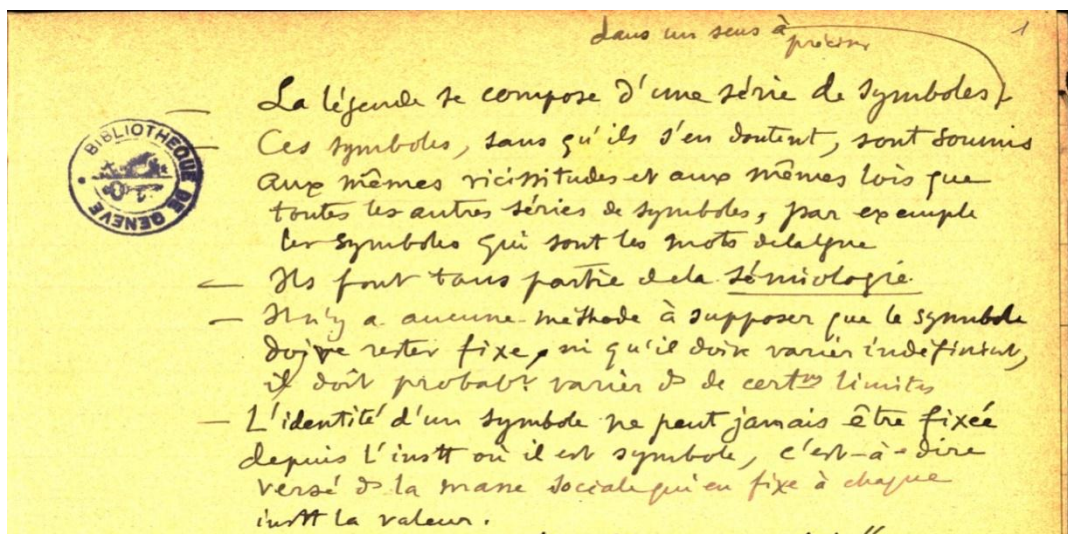 dans un sens à préciser
1
— La légende se compose d'une série de symboles,
— Ces symboles, sans qu'ils s'en doutent, sont soumis
aux mêmes vicissitudes et aux mêmes lois que
toutes les autres séries de symboles, par exemple
les symboles qui sont les mots de la lgue
— Ils font tous partie de la sémiologie.
— Il n'y a aucune méthode à supposer que le symbole
doive rester fixe, ni qu'il doive varier indéfinimt,
il doit probablt varier ds de certnes limites
— L'identité d'un symbole ne peut jamais être fixée
depuis l'instt où il est symbole, c'est-à-dire
versé ds la masse sociale qui en fixe à chaque
instt la valeur.
BIBLIOTHEQUE DE GENEVE